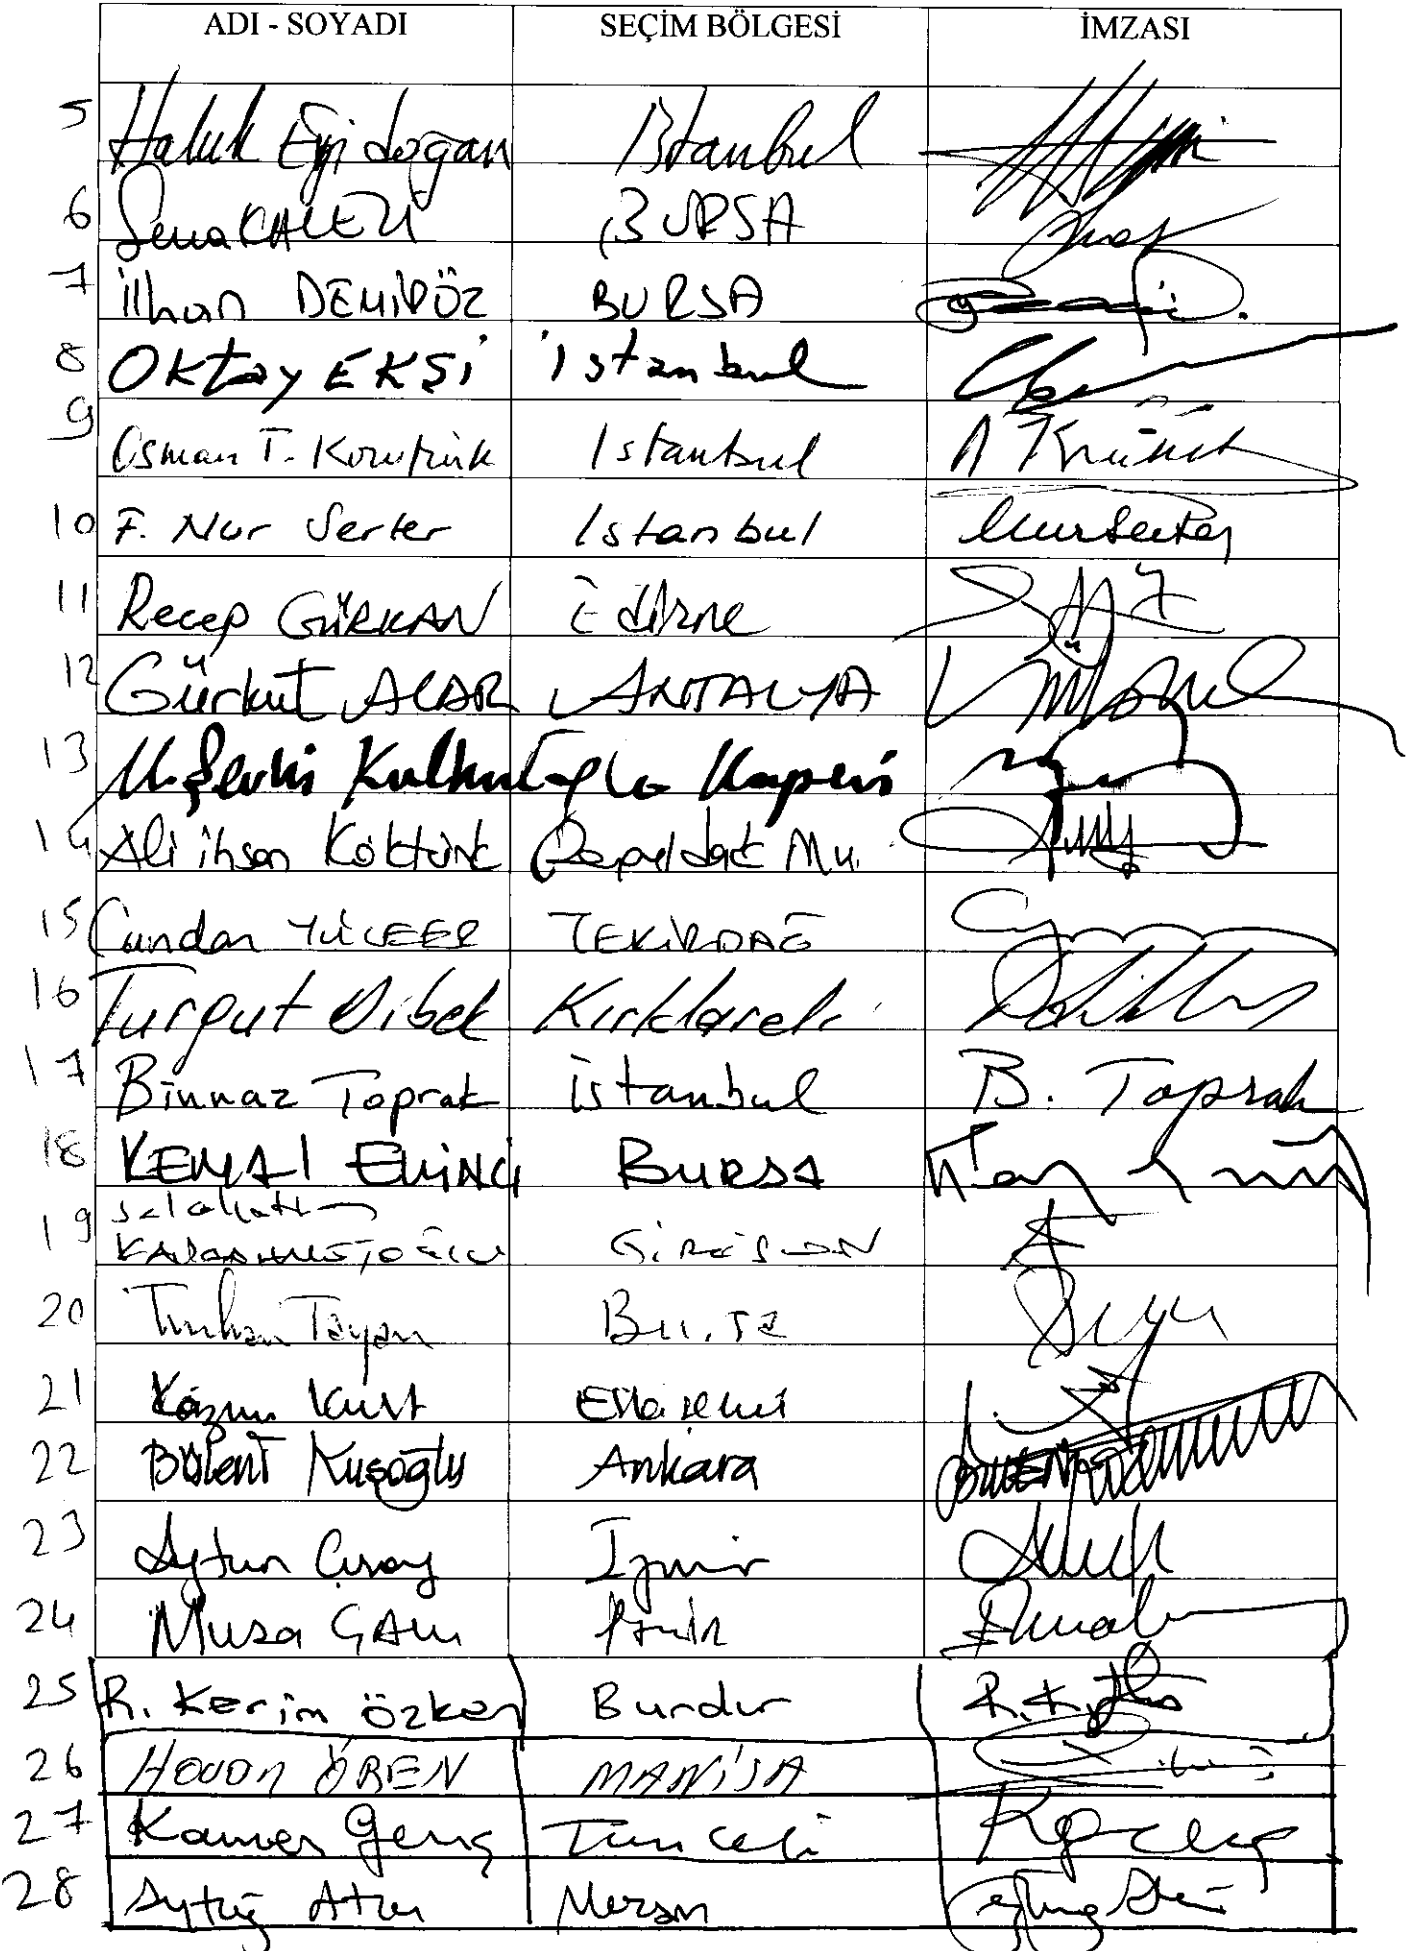 ADI - SOYADI SEÇİM BÖLGESİ İMZASI
5 Haluk Eyidoğan İstanbul
6 Sena KALELİ BURSA
7 İlhan DEMİRÖZ BURSA
8 Oktay EKŞİ İstanbul
9 Osman T. Korutürk Istanbul
10 F. Nur Serter Istanbul Nur Serter
11 Recep GÜRKAN Edirne
12 Gürkut ACAR ANTALYA
13 M. Şevki Kulkuloğlu Kayseri
14 Ali ihsan Köktürk Zonguldak Mv.
15 Candan YÜCEER TEKİRDAĞ
16 Turgut Dibek Kırklareli
17 Binnaz Toprak İstanbul B. Toprak
18 KEMAL EKİNCİ BURSA
19 Selahattin
KARAAHMETOĞLU GİRESUN
20 Turhan Tayan Bursa
21 Kazım Kurt Eskişehir
22 Bülent Kuşoğlu Ankara
23 Aytun Çıray İzmir
24 Musa ÇAM İzmir
25 R. Kerim Özkan Burdur
26 Hasan ÖREN MANİSA
27 Kamer Genç Tunceli
28 Aytuğ Atıcı Mersin